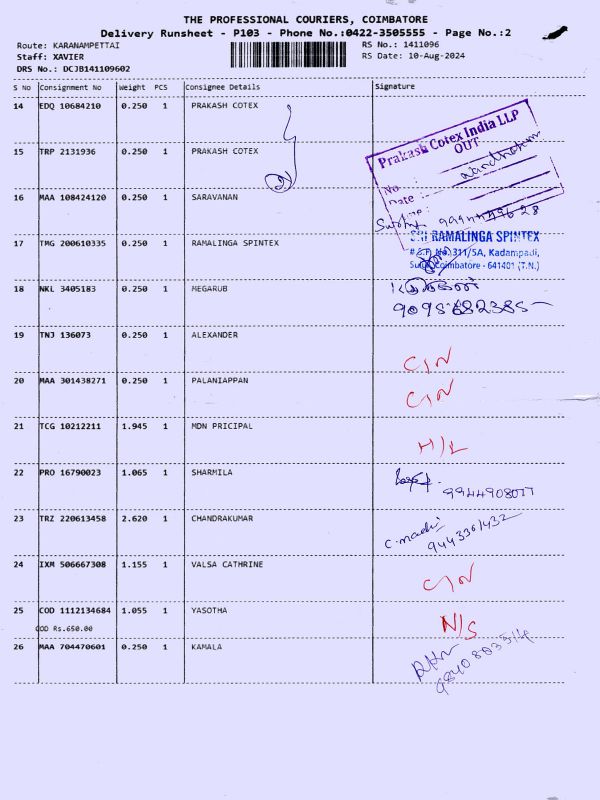 THE PROFESSIONAL COURIERS, COIMBATORE
Delivery Runsheet - P103 - Phone No.:0422-3505555 - Page No.:2
Route: KARANAMPETTAI
RS No.: 1411096
Staff: XAVIER
RS Date: 10-Aug-2024
DRS No.: DCJB141109602
S No Consignment No Weight PCS Consignee Details Signature
14 EDQ 10684210 0.250 1 PRAKASH COTEX
Prakash Cotex India LLP
OUT
15 TRP 2131936 0.250 1 PRAKASH COTEX
No
16 MAA 108424120 0.250 1 SARAVANAN
17 TMG 200610335 0.250 1 RAMALINGA SPINTEX
SRI RAMALINGA SPINTEX
# S.F. No.311/5A, Kadampadi,
Sulur, Coimbatore - 641401 (T.N.)
18 NKL 3405183 0.250 1 MEGARUB
19 TNJ 136073 0.250 1 ALEXANDER
C/N
20 MAA 301438271 0.250 1 PALANIAPPAN
C/N
21 TCG 10212211 1.945 1 MDN PRICIPAL
H/L
22 PRO 16790023 1.065 1 SHARMILA
9944908077
23 TRZ 220613458 2.620 1 CHANDRAKUMAR
9443361432
24 IXM 506667308 1.155 1 VALSA CATHRINE
C/N
25 COD 1112134684 1.055 1 YASOTHA
COD Rs.650.00
N/S
26 MAA 704470601 0.250 1 KAMALA
9840803514